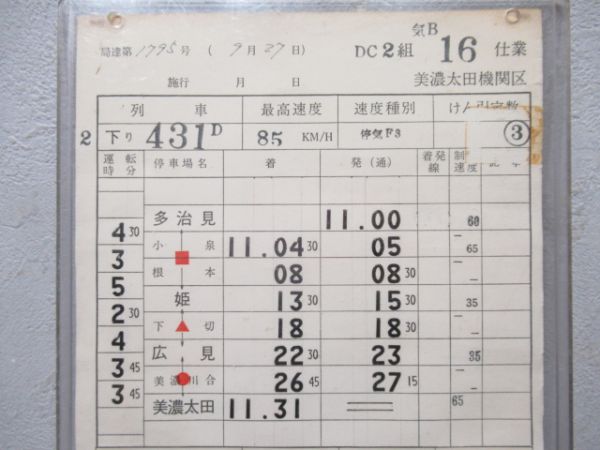 気B
局達第1795号 (9月27日) DC2組 16 仕業
施行 月 日 美濃太田機関区
列 車 最高速度 速度種別 けん引定数
2 下り 431D 85 KM/H 停気F3 ③
運転時分 停車場名 着 発(通) 着発線 制 速度
多治見 11.00 60
4 30
小泉 11.04 30 05 65
3
根本 08 08 30
5
姫 13 30 15 30 35
2 30
下切 18 18 30
4
広見 22 30 23 35
3 45
美濃川合 26 45 27 15
3 45
美濃太田 11.31 65